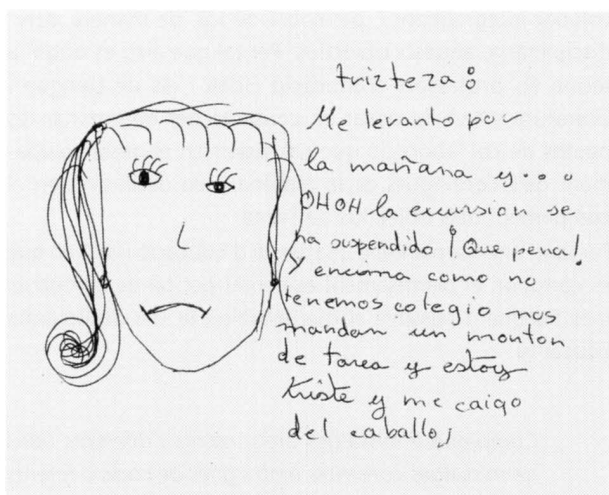 trizteza:
Me levanto por
la mañana y...
OHOH la excursion se
ha suspendido ¡Que pena!
y encima como no
tenemos colegio nos
mandan un monton
de tarea y estoy
triste y me caigo
del caballo,